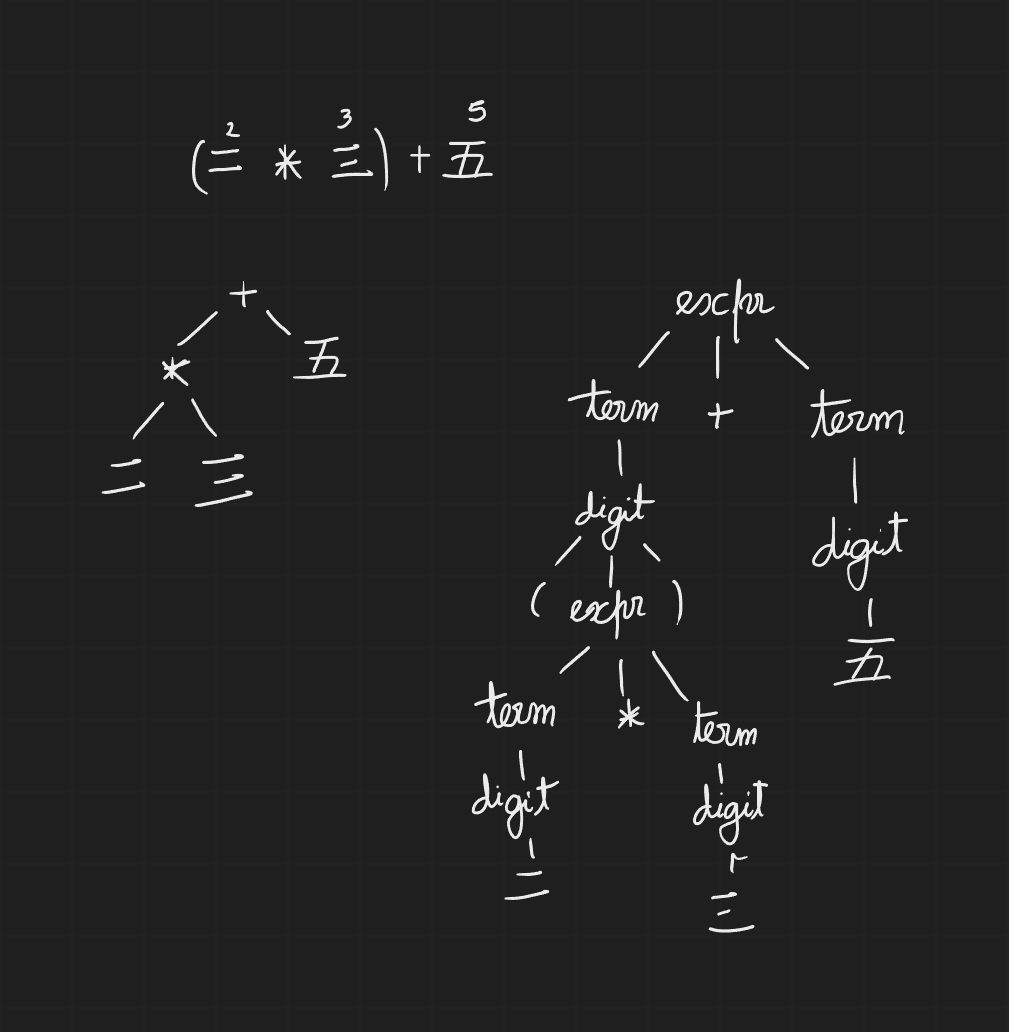 2 3 5
(二 * 三) + 五
+
* 五
二 三
expr
term + term
digit
digit
( expr )
五
term * term
digit digit
二
三